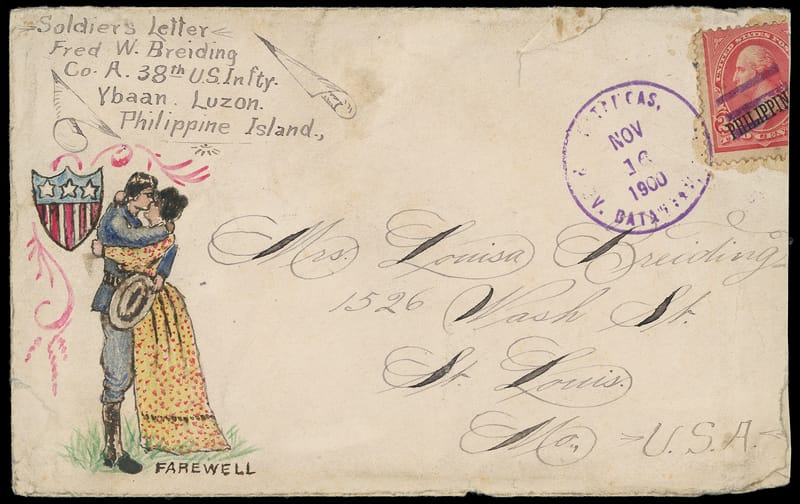 Soldiers Letter
Fred W. Breiding
Co. A. 38th U.S. Infty.
Ybaan. Luzon.
Philippine Island.,
NOV
16
1900
BATANGAS,
UNITED STATES POST
PHILIPPIN
Mrs. Louisa Breiding
1526 Wash St.
St. Louis.
Mo., U.S.A.
FAREWELL